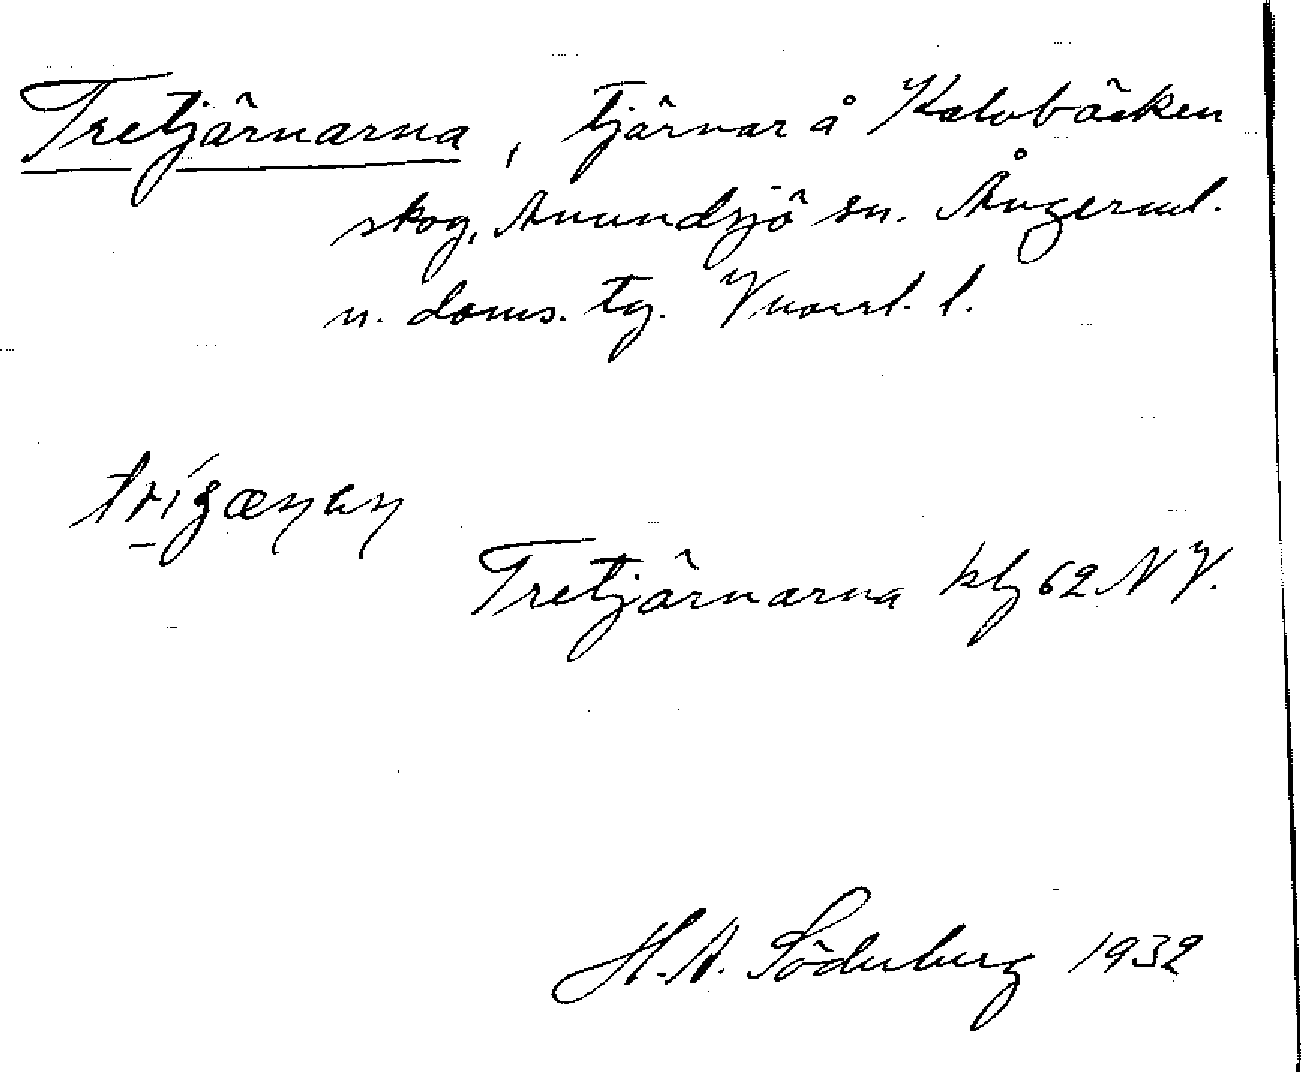 Tretjärnarna, tjärnar å Kalvbäcken
skog, Anundsjö sn. Ångerml.
n. doms. tg. Vnorrl. l.
Tretjärnarna kbl 62 NV.
H. A. Söderberg 1932